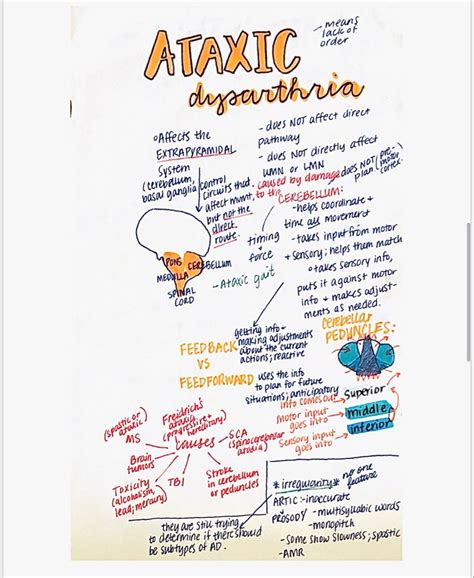 ATAXIC
- means
lack of
order
dysarthria
Affects the
EXTRAPYRAMIDAL
System
(cerebellum,
basal ganglia, control
circuits that
affect mvmt,
but not the
direct
route)
- does NOT affect direct
pathway
- does NOT directly affect
UMN or LMN
does NOT
plan (pre-
motor
cortex)
caused by damage
to the
CEREBELLUM:
- helps coordinate +
time all movement
timing
+
force
- takes input from motor
+ sensory; helps them match
takes sensory info,
puts it against motor
info + makes adjust-
ments as needed.
- Ataxic gait
PONS
CEREBELLUM
MEDULLA
SPINAL
CORD
Cerebellar
PEDUNCLES:
FEEDBACK
getting info +
making adjustments
about the current
actions; reactive
VS
FEEDFORWARD
uses the info
to plan for future
situations; anticipatory
info comes out
Superior
Motor input
goes into
middle
Sensory input
goes into
inferior
causes
(spastic or
ataxic)
MS
Freidrich's
ataxia
(progressive +
hereditary)
SCA
(spinocerebellar
ataxia)
Brain
tumors
Toxicity
(alcoholism,
lead, mercury)
TBI
Stroke
in cerebellum
or peduncles
they are still trying
to determine if there should
be subtypes of AD.
* irregularity *
no one
feature
ARTIC - inaccurate
PROSODY - multisyllabic words
- monopitch
- some show slowness; spastic
- AMR